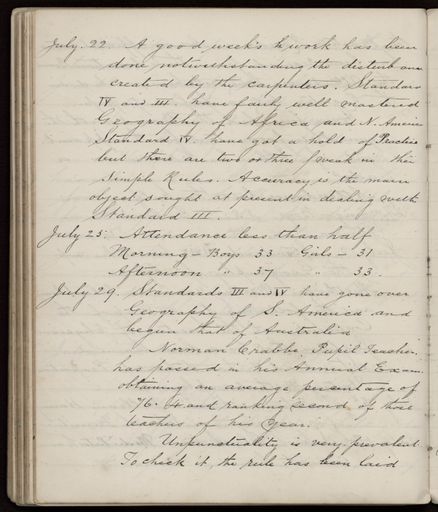 July. 22. A good week's work has been
done notwithstanding the disturbance
created by the carpenters. Standards
IV and III have fairly well mastered
Geography of Africa and N. America
Standard IV have got a hold of Practice
but there are two or three weak in the
Simple Rules. Accuracy is the main
object sought at present in dealing with
Standard III.
July 25. Attendance less than half
Morning - Boys 33 Girls - 31
Afternoon " 37 " 33.
July 29. Standards III and IV have gone over
Geography of S. America and
begun that of Australia
Norman Crabbe, Pupil Teacher,
has passed in his Annual Exam.
obtaining an average percentage of
76.4 and ranking second of those
teachers of his year.
Unpunctuality is very prevalent
To check it, the rule has been laid